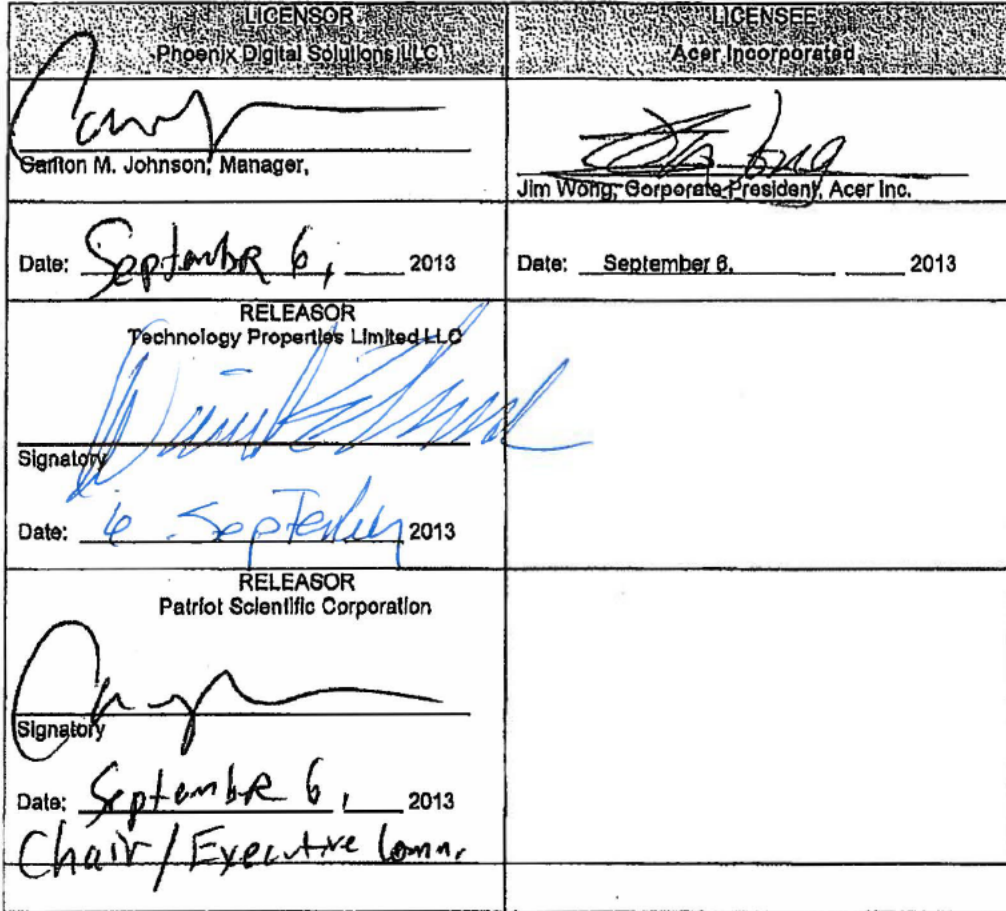 LICENSOR
Phoenix Digital Solutions LLC
LICENSEE
Acer Incorporated
Carlton M. Johnson, Manager,
Jim Wong, Corporate President, Acer Inc.
Date: September 6, 2013
Date: September 6, 2013
RELEASOR
Technology Properties Limited LLC
Signatory
Date: 6 September 2013
RELEASOR
Patriot Scientific Corporation
Signatory
Date: September 6, 2013
Chair / Executive Comm.